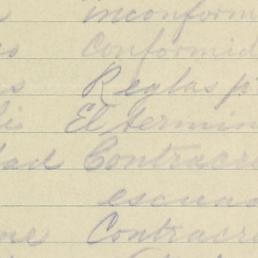 inconform
conformid
Reglas p
El termin
dad Contracr
escua
me Contracr